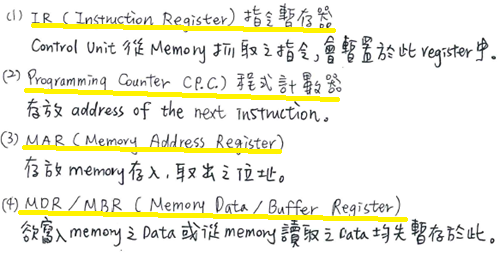 (1) IR (Instruction Register) 指令暫存器
Control Unit 從 Memory 抓取之指令,會暫置於此 register 中。
(2) Programming Counter (P.C.) 程式計數器
存放 address of the next instruction。
(3) MAR (Memory Address Register)
存放 memory 存入,取出之位址。
(4) MDR / MBR ( Memory Data / Buffer Register)
欲寫入 memory 之 Data 或從 memory 讀取之 Data 均先暫存於此。